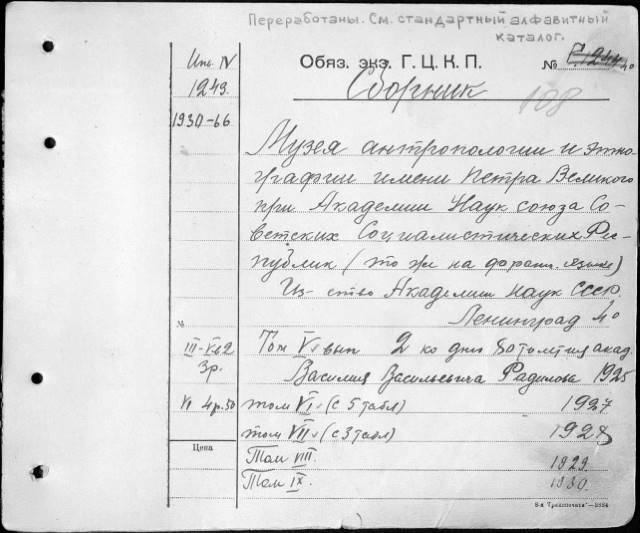 Переработаны. См. стандартный алфавитный
каталог.
Инв. IV
1249.
1930-66
Обяз. экз. Г. Ц. К. П.
№
Сборник
108
Музея антропологии и этно-
графии имени Петра Великого
при Академии Наук союза Со-
ветских Социалистических Рес-
публик (то же на франц. языке)
Из-ство Академии наук СССР.
Ленинград 4°
№
III-V в2
3р.
Том V вып 2 ко дню 80тилетия акад.
Василия Васильевича Радлова 1925
VI 4р.50
том VI (с 5 табл) 1927
том VII (с 3 табл) 1928
Цена
Том VIII. 1829.
Том IX. 1830.
8-я „Транспечать“—2224